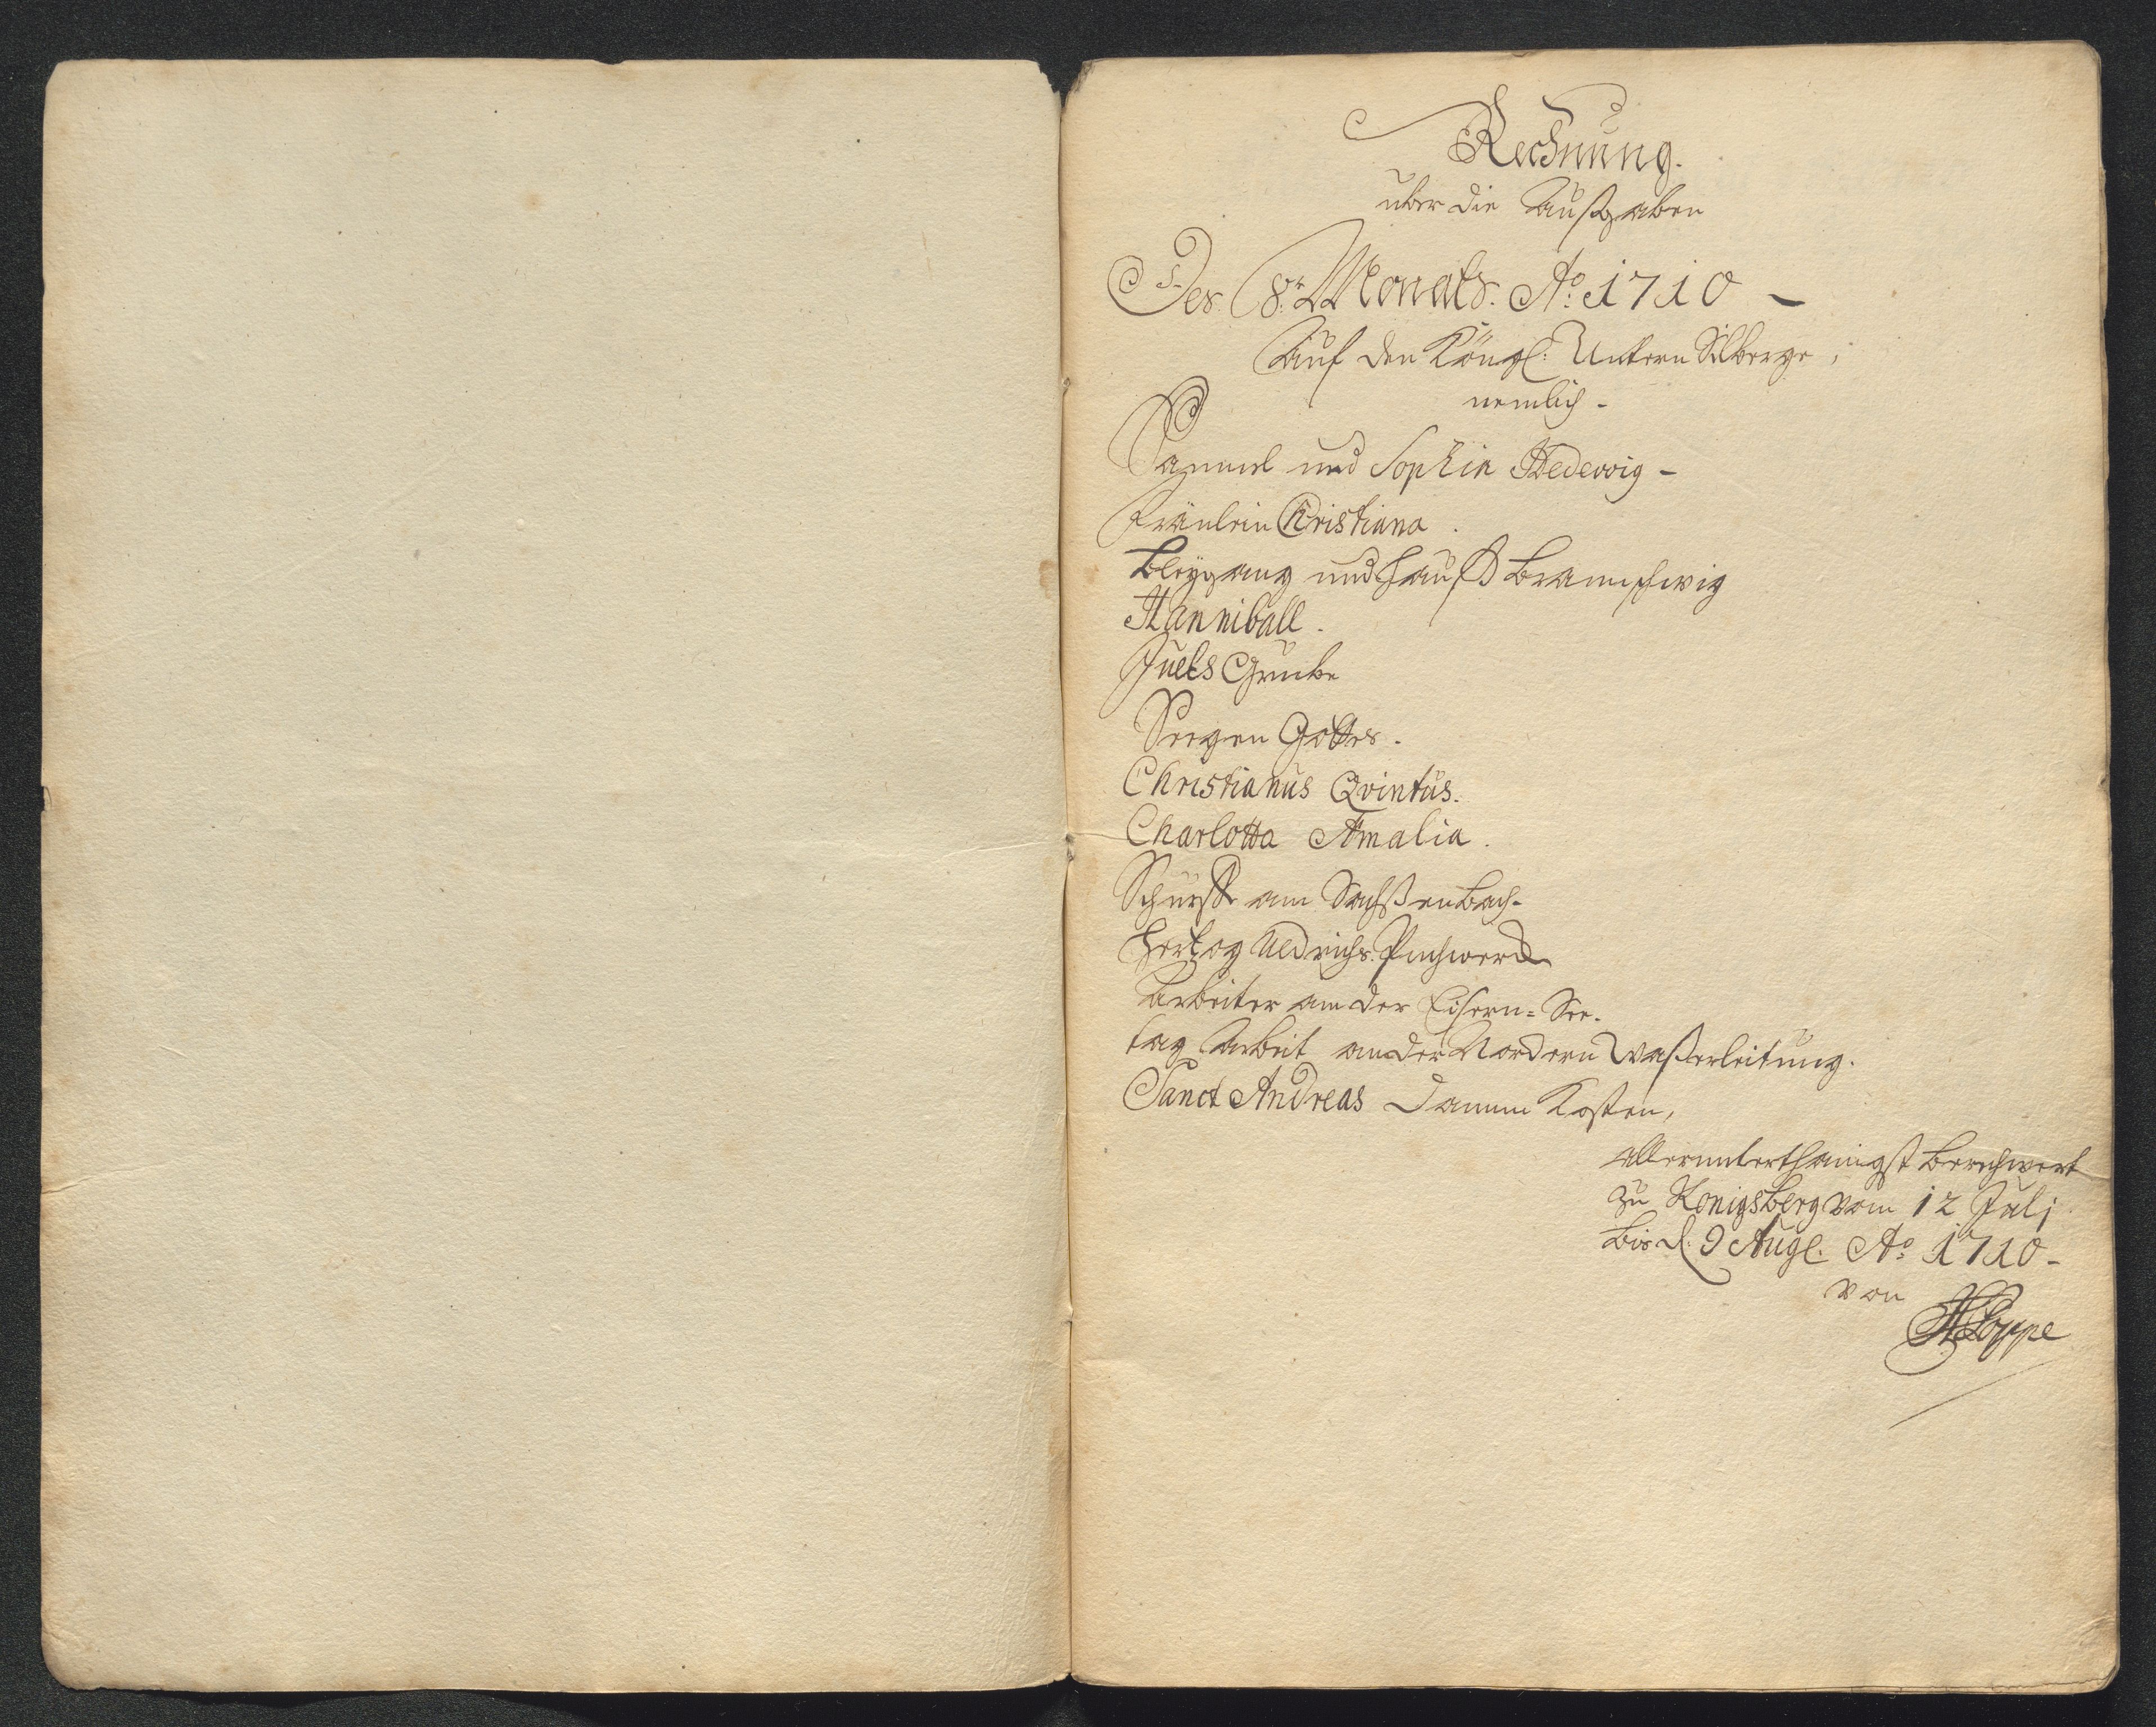 Rechnung.
über die Außgaben
Des 8.ⁿ Monats. Aᵒ: 1710 -
Auf den Köngl: Untern Silberge,
nemlich -
Samuel und Sophia Hedewig -
Fräulein Christiana.
Bleygang und Hauß Braunschwig
Hanniball.
Juels Grube
Seegen Gottes.
Christianus Qvintus.
Charlotta Amalia.
Schürffe am Sachßenbach-
Hertzog Uldrichs Puchwerck
Arbeiter an der Eisern=See.
tag Arbeit an der Nordern Waßerleitung.
Sanct Andreas Damm Kosten,
allerunterthänigst
zu Konigsberg vom 12 Julj
bis d. 9 Augl. Aᵒ 1710-
von